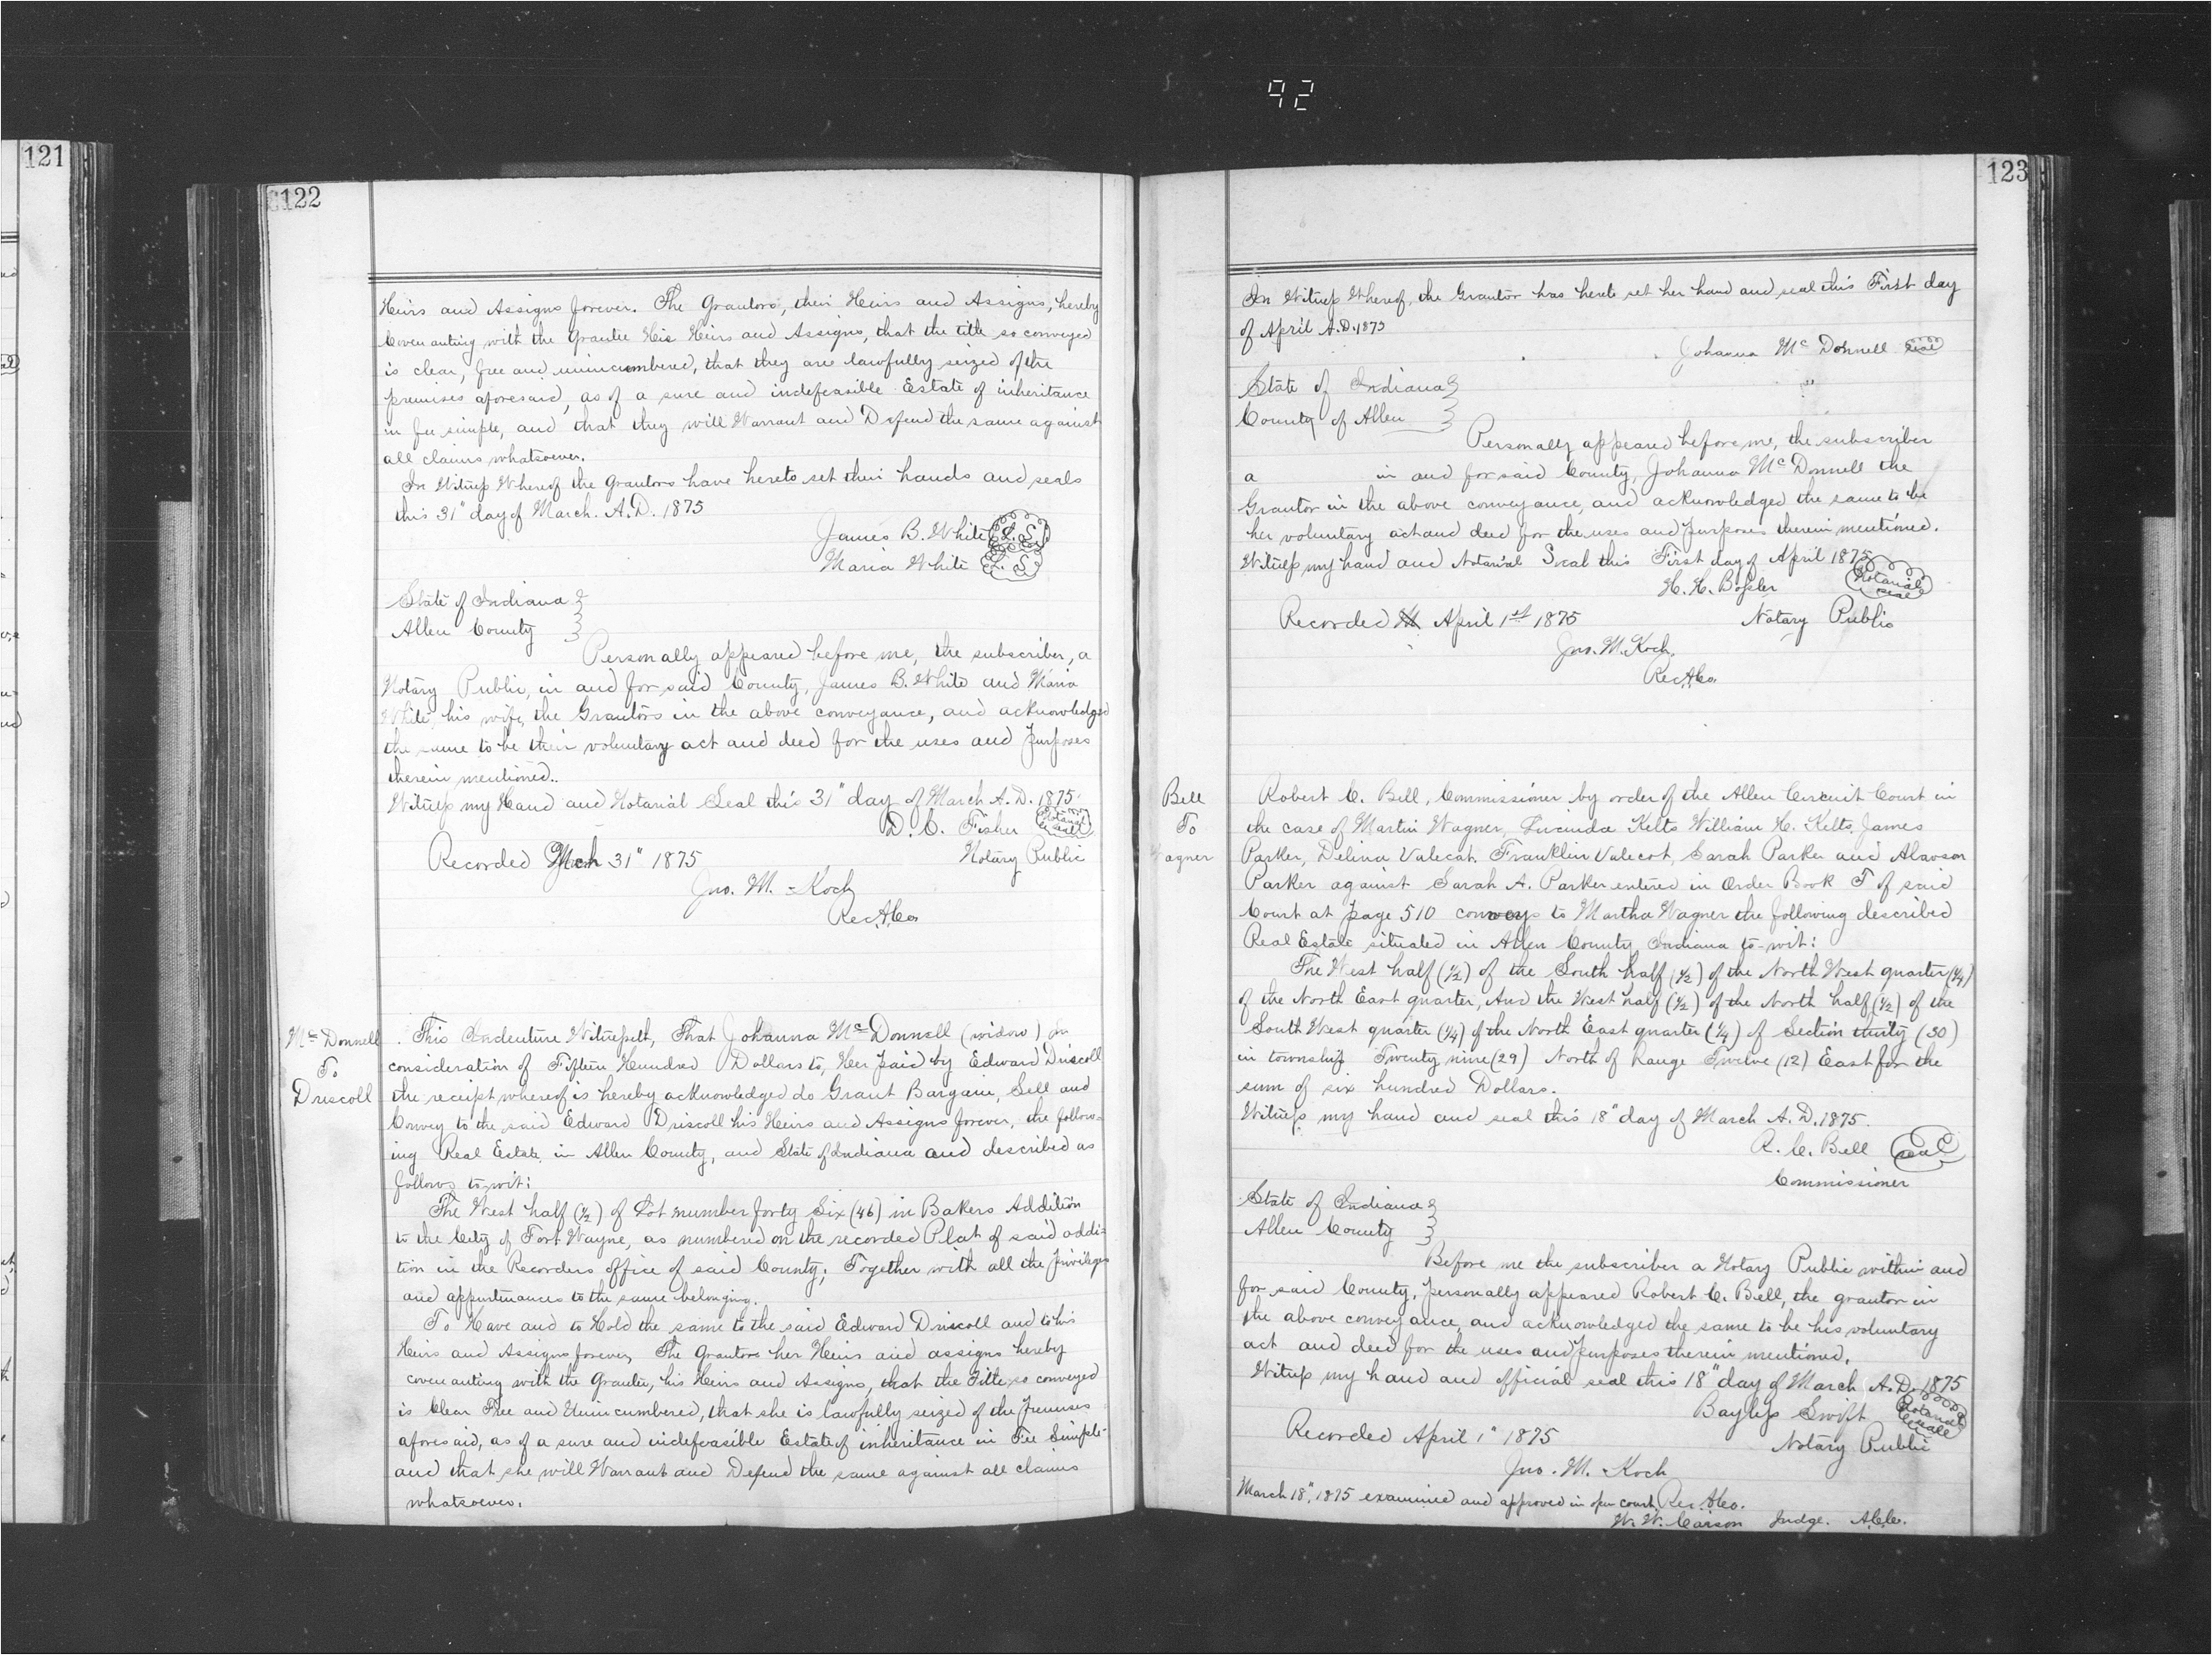 92
121
122
Heirs and Assigns forever. The Grantors, their Heirs and Assigns, hereby
Covenanting with the Grantee His Heirs and Assigns, that the title so conveyed
is clear, free and unincumbered, that they are lawfully seized of the
premises aforesaid, as of a sure and indefeasible Estate of inheritance
in fee simple, and that they will Warrant and Defend the same against
all claims whatsoever.
In Witness Whereof the Grantors have hereto set their hands and seals
this 31" day of March. A.D. 1875
James B. White (L.S.)
Maria White (L.S.)
State of Indiana
Allen County
Personally appeared before me, the subscriber, a
Notary Public, in and for said County, James B. White and Maria
White, his wife, the Grantors in the above conveyance, and acknowledged
the same to be their voluntary act and deed for the uses and purposes
therein mentioned..
Witness my Hand and Notarial Seal this 31" day of March A.D. 1875.
D. C. Fisher Notarial Seal
Recorded Mch 31" 1875 Notary Public
Jno. M. Koch
Rec. A. Co.
Mc Donnell
To
Driscoll
This Indenture Witnesseth, That Johanna Mc Donnell (widow) In
consideration of Fifteen Hundred Dollars to, Her paid by Edward Driscoll
the receipt whereof is hereby acknowledged do Grant Bargain, Sell and
Convey to the said Edward Driscoll his Heirs and Assigns forever, the follow=
ing Real Estate in Allen County, and State of Indiana and described as
follows to-wit:
The West half (1/2) of Lot number forty Six (46) in Bakers Addition
to the City of Fort Wayne, as numbered on the recorded Plat of said addi=
tion in the Recorders office of said County; Together with all the privileges
and appurtenances to the same belonging.
To Have and to Hold the same to the said Edward Driscoll and to his
Heirs and Assigns forever, The Grantors her Heirs and assigns hereby
covenanting with the Grantee, his Heirs and Assigns, that the Title so conveyed
is Clear Free and Unincumbered, that she is lawfully seized of the Premises
aforesaid, as of a sure and indefeasible Estate of inheritance in Fee Simple-
and that she will Warrant and Defend the same against all claims
whatsoever.
123
In Witness Whereof, the Grantor has hereto set her hand and seal this First day
of April A.D. 1875
Johanna Mc Donnell Seal
State of Indiana
County of Allen
Personally appeared before me, the subscriber
a in and for said County, Johanna Mc Donnell the
Grantor in the above conveyance, and acknowledged the same to be
her voluntary act and deed for the uses and purposes therein mentioned.
Witness my hand and Notarial Seal this First day of April 1875
H. H. Bossler Notarial seal
Recorded April 1st 1875 Notary Public
Jno. M. Koch.
Rec. A. Co.
Bell
To
Wagner
Robert C. Bell, Commissioner by order of the Allen Circuit Court in
the case of Martin Wagner, Lucinda Kelts William H. Kelts, James
Parker, Delina Valecat. Franklin Valecot, Sarah Parker and Alanson
Parker against Sarah A. Parker entered in Order Book T of said
Court at page 510 conveys to Martha Wagner the following described
Real Estate situated in Allen County Indiana to-wit:
The West half (1/2) of the South half (1/2) of the North West quarter (1/4)
of the North East quarter, And the West half (1/2) of the North half (1/2) of the
South West quarter (1/4) of the North East quarter (1/4) of Section thirty (30)
in township Twenty nine (29) North of range Twelve (12) East for the
sum of six hundred Dollars.
Witness my hand and seal this 18" day of March A.D. 1875.
R. C. Bell seal
Commissioner
State of Indiana
Allen County
Before me the subscriber a Notary Public within and
for said County, personally appeared Robert C. Bell, the grantor in
the above conveyance, and acknowledged the same to be his voluntary
act and deed for the uses and purposes therein mentioned.
Witness my hand and official seal this 18" day of March A.D. 1875
Bayless Swift Notarial Seal
Recorded April 1" 1875 Notary Public
Jno. M. Koch
March 18", 1875 examined and approved in open court. Rec. A. Co.
W. W. Carson Judge. A.C.C.